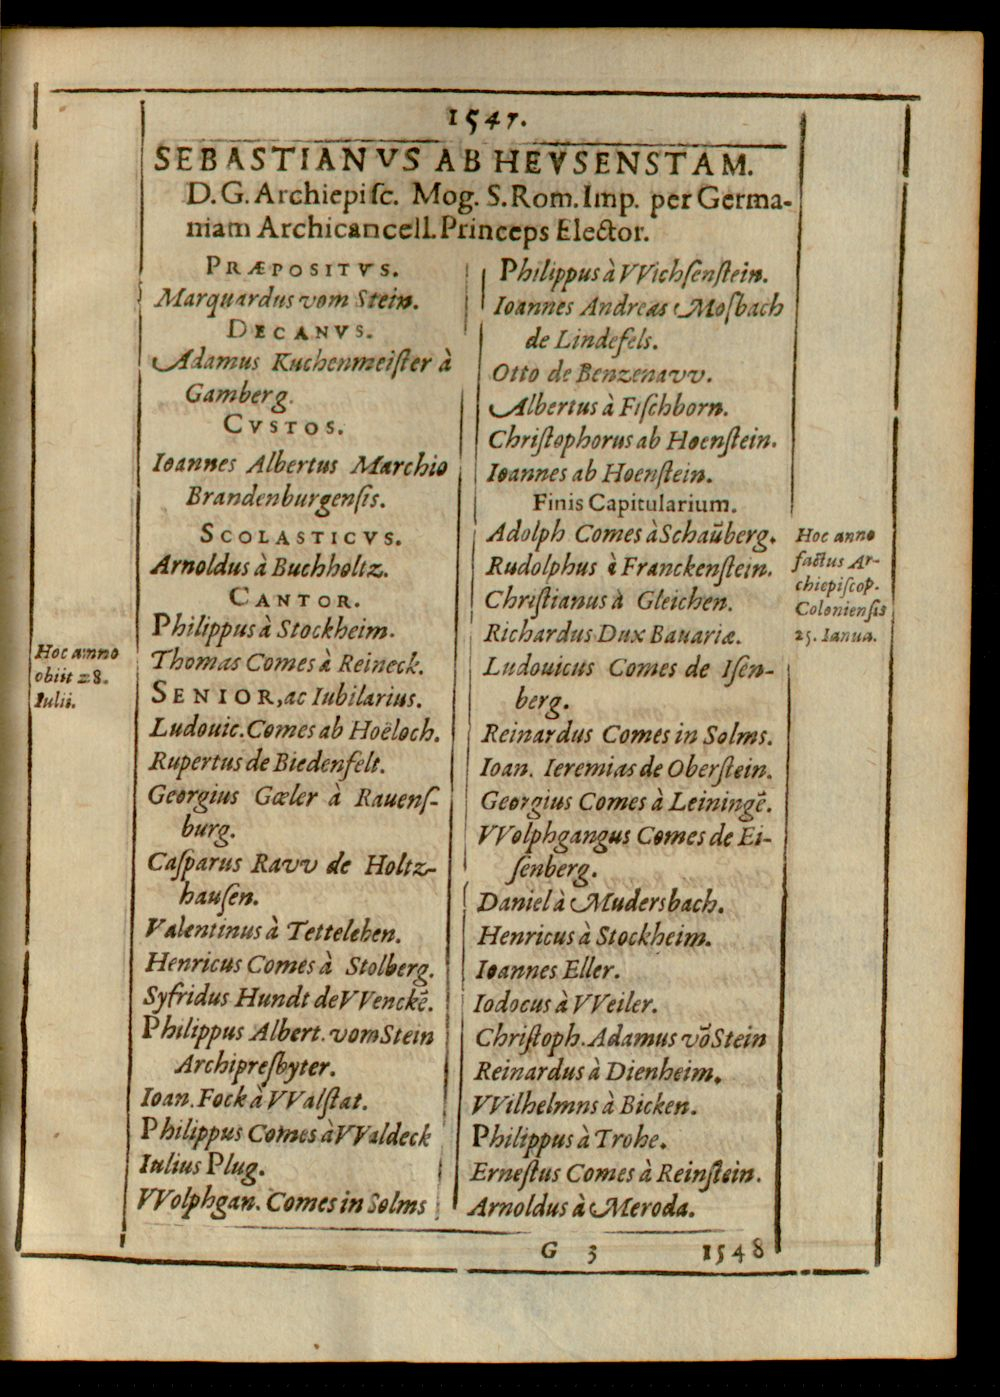 1547.
SEBASTIANVS AB HEVSENSTAM.
D. G. Archiepisc. Mog. S. Rom. Imp. per Germa-
niam Archicancell. Princeps Elector.
PRÆPOSITVS.
Marquardus vom Stein.
DECANVS.
Adamus Kuchenmeister à
Gamberg.
CVSTOS.
Ioannes Albertus Marchio
Brandenburgensis.
SCOLASTICVS.
Arnoldus à Buchholtz.
CANTOR.
Philippus à Stockheim.
Thomas Comes à Reineck.
SENIOR, ac Iubilarius.
Ludouic. Comes ab Hoëloch.
Rupertus de Biedenfelt.
Georgius Gœler à Rauens-
burg.
Casparus Ravv de Holtz-
hausen.
Valentinus à Tetteleben.
Henricus Comes à Stolberg.
Syfridus Hundt de VVenckē.
Philippus Albert. vom Stein
Archipresbyter.
Ioan. Fock à VValstat.
Philippus Comes à VValdeck
Iulius Plug.
VVolphgan. Comes in Solms
Hoc amno
obiit 28.
Iulii.
Philippus à VVichsenstein.
Ioannes Andreas Mosbach
de Lindefels.
Otto de Benzenavv.
Albertus à Fischborn.
Christophorus ab Hoenstein.
Ioannes ab Hoenstein.
Finis Capitularium.
Adolph Comes à Schaūberg.
Rudolphus à Franckenstein.
Christianus à Gleichen.
Richardus Dux Bauariæ.
Ludouicus Comes de Isen-
berg.
Reinardus Comes in Solms.
Ioan. Ieremias de Oberstein.
Georgius Comes à Leiningē.
VVolphgangus Comes de Ei-
senberg.
Daniel à Mudersbach.
Henricus à Stockheim.
Ioannes Eller.
Iodocus à VVeiler.
Christoph. Adamus vō Stein
Reinardus à Dienheim.
VVilhelmns à Bicken.
Philippus à Trohe.
Ernestus Comes à Reinstein.
Arnoldus à Meroda.
Hoc anno
factus Ar-
chiepiscop.
Coloniensis
25. Ianua.
G 3 1548